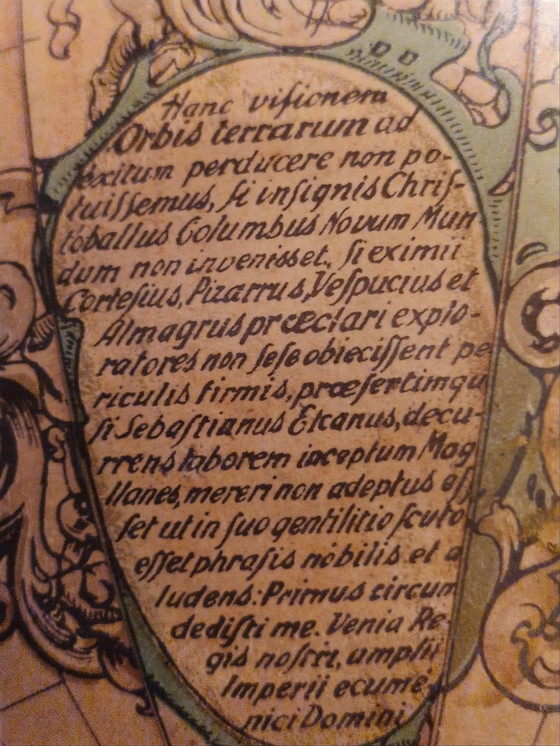 Hanc visionem
Orbis terrarum ad
exitum perducere non po-
tuissemus, si insignis Chris-
toballus Columbus Novum Mun
dum non invenisset, si eximii
Cortesius, Pizarrus, Vespucius et
Almagrus præclari explo-
ratores non sese obiecissent pe
riculis firmis, præsertimqu
si Sebastianus Elcanus, decu-
rrens laborem inceptum Mag
llanes, mereri non adeptus es
set ut in suo gentilitio scuto
esset phrasis nobilis et a
ludens: Primus circum
dedisti me. Venia Re
gis nostri, amplii
Imperii ecume
nici Domini